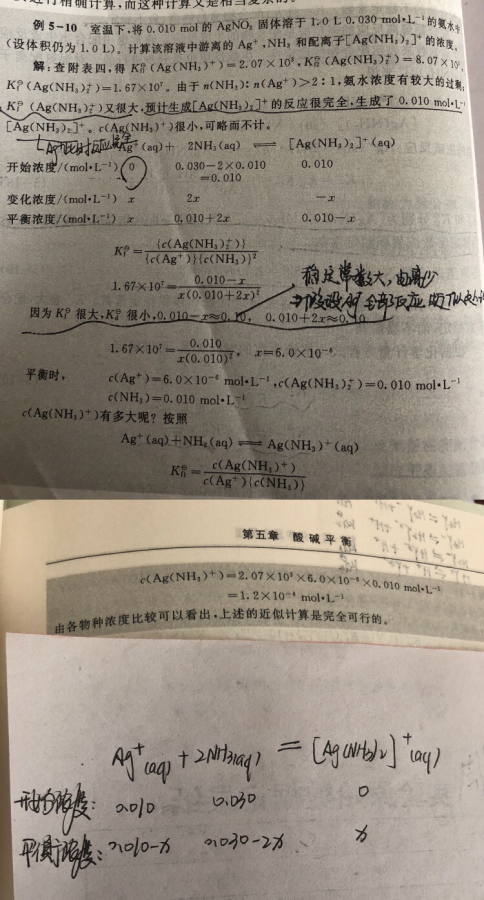 例 5-10 室温下,将 0.010 mol 的 AgNO₃ 固体溶于 1.0 L 0.030 mol·L⁻¹ 的氨水中
(设体积仍为 1.0 L)。计算该溶液中游离的 Ag⁺,NH₃ 和配离子[Ag(NH₃)₂]⁺ 的浓度。
解:查附表四,得 K (Ag(NH₃)⁺)=2.07×10³,K (Ag(NH₃)₂⁺)=8.07×10³,
K (Ag(NH₃)₂⁺)=1.67×10⁷。由于 n(NH₃):n(Ag⁺)>2:1,氨水浓度有较大的过剩,
K (Ag(NH₃)₂⁺)又很大,预计生成[Ag(NH₃)₂]⁺ 的反应很完全,生成了 0.010 mol·L⁻¹
[Ag(NH₃)₂]⁺。c(Ag(NH₃)⁺)很小,可略而不计。
Ag⁺(aq) + 2NH₃(aq) ⇌ [Ag(NH₃)₂]⁺(aq)
开始浓度/(mol·L⁻¹) 0 0.030-2×0.010 0.010
=0.010
变化浓度/(mol·L⁻¹) x 2x -x
平衡浓度/(mol·L⁻¹) x 0.010+2x 0.010-x
K = {c(Ag(NH₃)₂⁺)} / {c(Ag⁺)}{c(NH₃)}²
1.67×10⁷= 0.010-x / x(0.010+2x)²
因为 K 很大,K 很小,0.010-x≈0.10, 0.010+2x≈0.10
1.67×10⁷= 0.010 / x(0.010)², x=6.0×10⁻⁶
平衡时, c(Ag⁺)=6.0×10⁻⁶ mol·L⁻¹,c(Ag(NH₃)₂⁺)=0.010 mol·L⁻¹
c(NH₃)=0.010 mol·L⁻¹
c(Ag(NH₃)⁺)有多大呢?按照
Ag⁺(aq)+NH₃(aq) ⇌ Ag(NH₃)⁺(aq)
K = c(Ag(NH₃)⁺) / c(Ag⁺){c(NH₃)}
第五章 酸碱平衡
c(Ag(NH₃)⁺)=2.07×10³×6.0×10⁻⁶×0.010 mol·L⁻¹
=1.2×10⁻⁴ mol·L⁻¹
由各物种浓度比较可以看出,上述的近似计算是完全可行的。
Ag⁺(aq) + 2NH₃(aq) = [Ag(NH₃)₂]⁺(aq)
开始浓度: 0.010 0.030 0
平衡浓度: 0.010-x 0.030-2x x